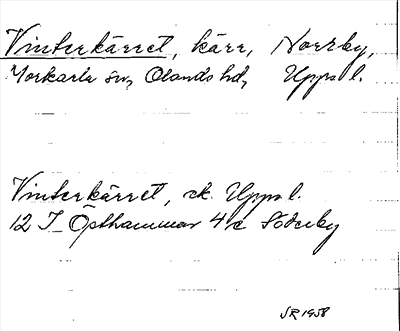 Vinterkärret, kärr, Norrby,
Morkarla sn, Olands hd, Uppsl.
Vinterkärret, ek. Uppsl.
12 I Östhammar 4 c Söderby
SR 1958